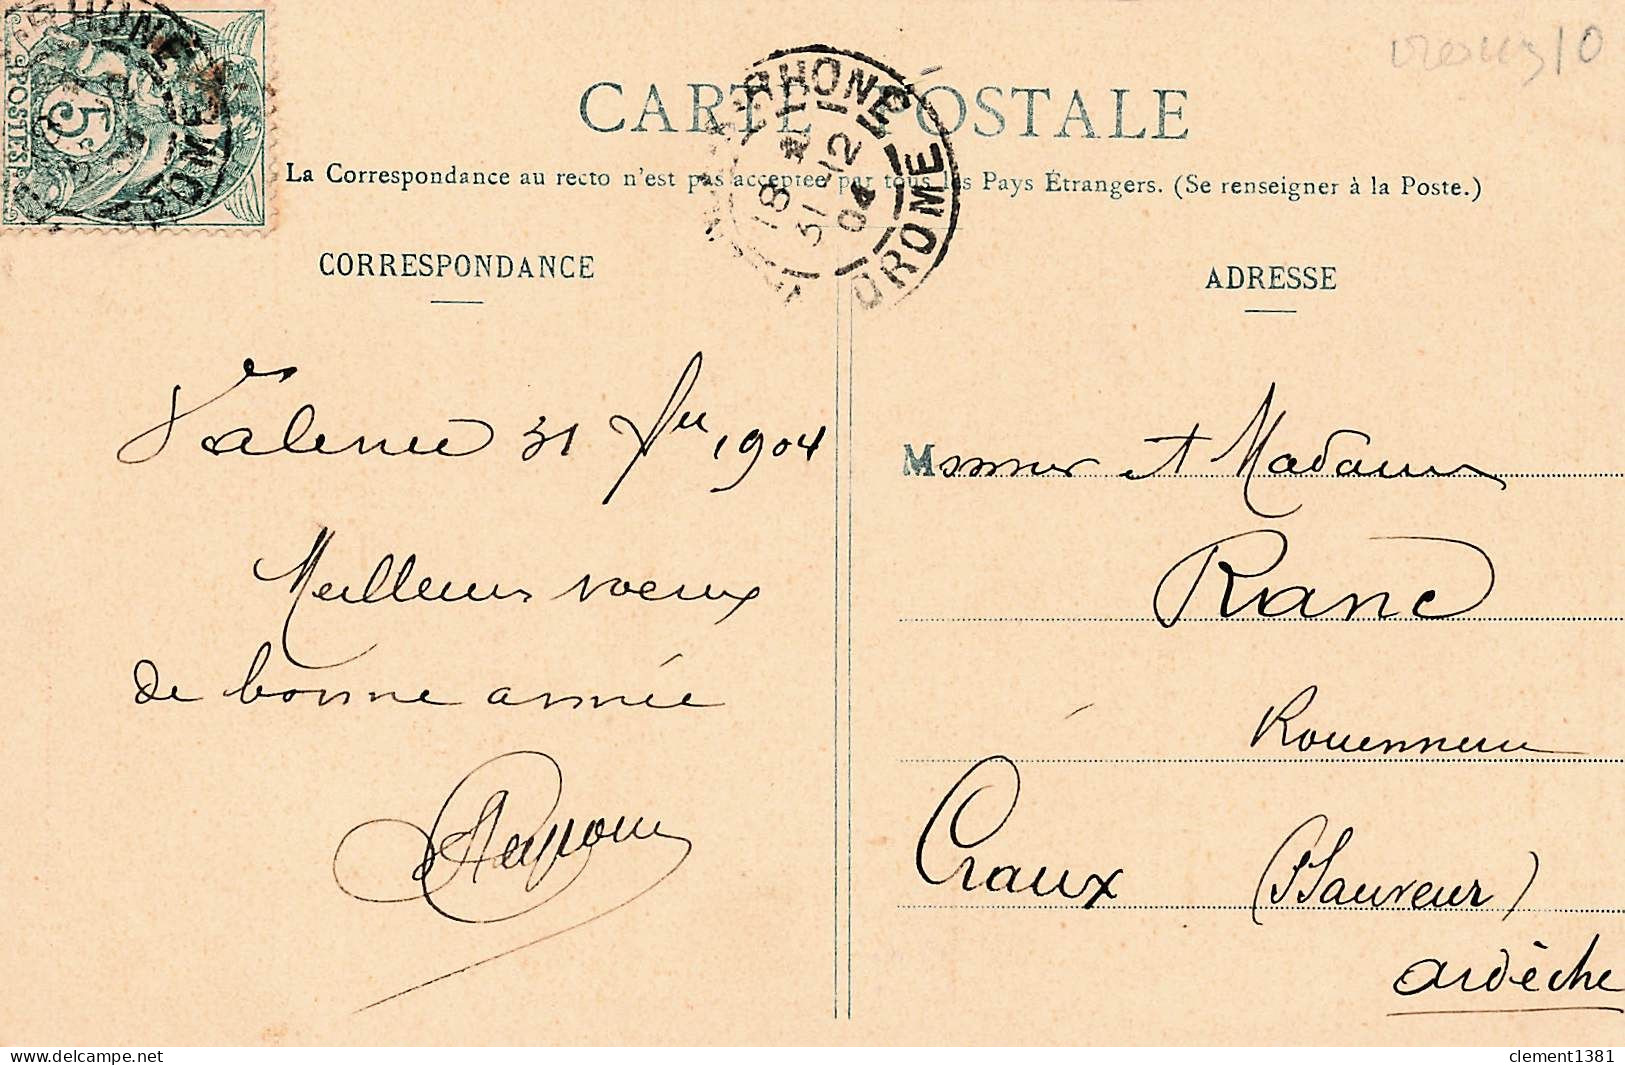 POSTES
5c
CARTE POSTALE
La Correspondance au recto n'est pas acceptée par tous les Pays Étrangers. (Se renseigner à la Poste.)
RHONE
18
31 12
04
DROME
CORRESPONDANCE
ADRESSE
Valence 31 Xbre 1904
Meilleurs voeux
de bonne année
Monsieur et Madame
Ranc
Craux (St Sauveur)
Ardèche
10
delcampe.net
clement1381